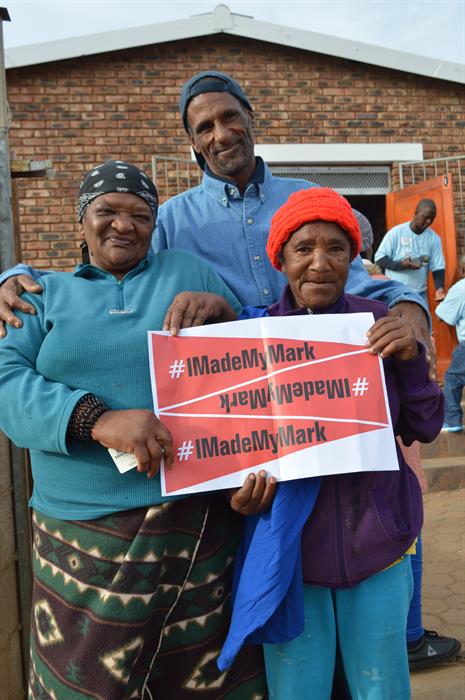 #IMadeMyMark
#IMadeMyMark
#IMadeMyMark